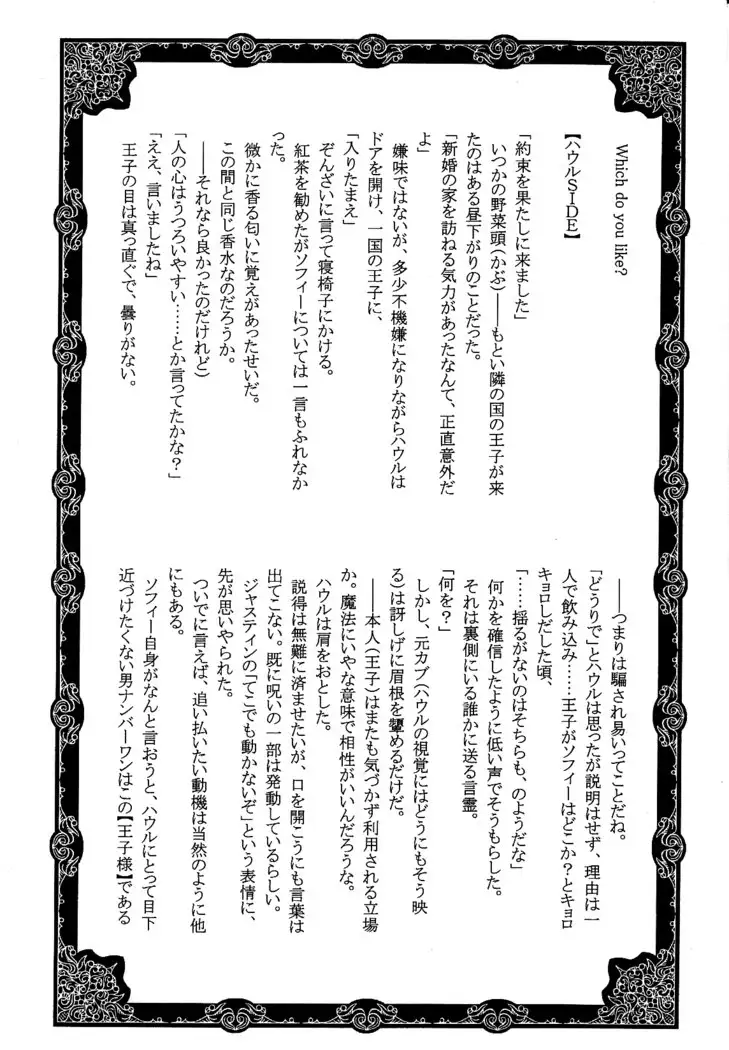 Which do you like?
【ハウルSIDE】
「約束を果たしに来ました」
いつかの野菜頭（かぶ）――もとい隣の国の王子が来
たのはある昼下がりのことだった。
「新婚の家を訪ねる気力があったなんて、正直意外だ
よ」
嫌味ではないが、多少不機嫌になりながらハウルは
ドアを開け、一国の王子に、
「入りたまえ」
ぞんざいに言って寝椅子にかける。
紅茶を勧めたがソフィーについては一言もふれなか
った。
微かに香る匂いに覚えがあったせいだ。
この間と同じ香水なのだろうか。
――それなら良かったのだけれど）
「人の心はうつろいやすい……とか言ってたかな？」
「ええ、言いましたね」
王子の目は真っ直ぐで、曇りがない。
――つまりは騙され易いってことだね。
「どうりで」とハウルは思ったが説明はせず、理由は一
人で飲み込み……王子がソフィーはどこか？とキョロ
キョロしだした頃、
「……揺るがないのはそちらも、のようだな」
何かを確信したように低い声でそうもらした。
それは裏側にいる誰かに送る言霊。
「何を？」
しかし、元カブ（ハウルの視覚にはどうにもそう映
る）は訝しげに眉根を顰めるだけだ。
――本人（王子）はまたも気づかず利用される立場
か。魔法にいやな意味で相性がいいんだろうな。
ハウルは肩をおとした。
説得は無難に済ませたいが、口を開こうにも言葉は
出てこない。既に呪いの一部は発動しているらしい。
ジャスティンの「てこでも動かないぞ」という表情に、
先が思いやられた。
ついでに言えば、追い払いたい動機は当然のように他
にもある。
ソフィー自身がなんと言おうと、ハウルにとって目下
近づけたくない男ナンバーワンはこの【王子様】である